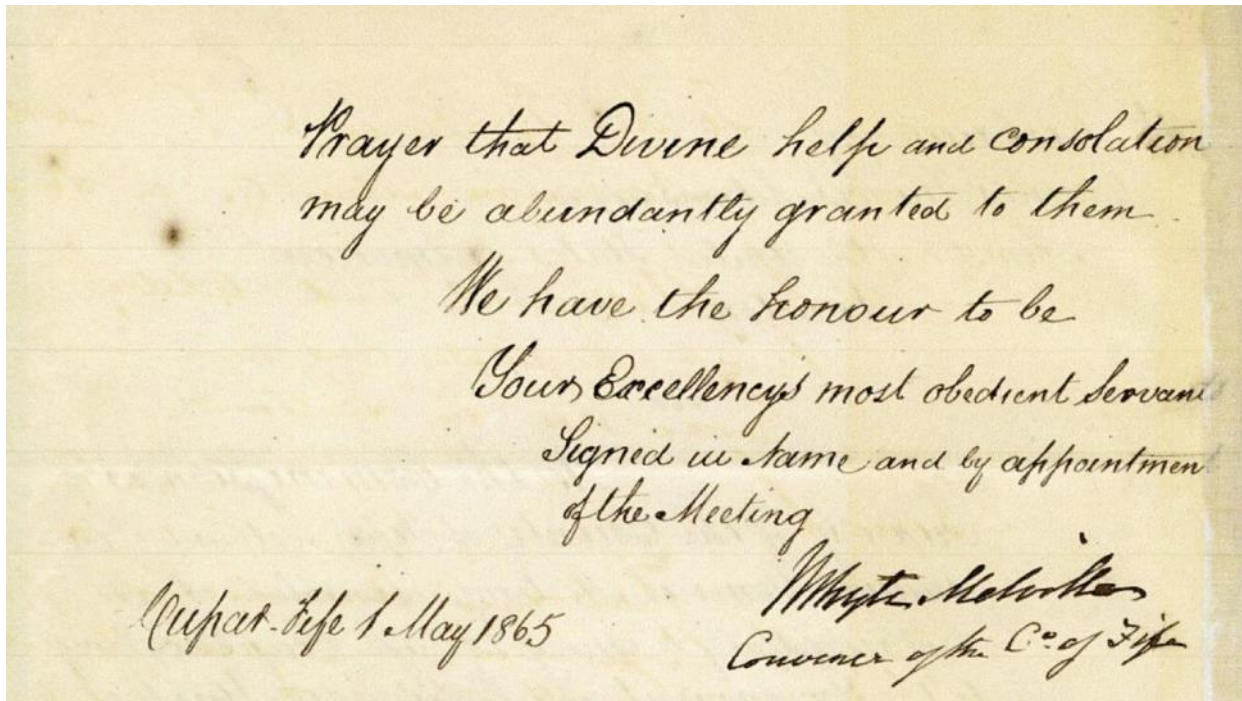 Prayer that Divine help and consolation
may be abundantly granted to them.
We have the honour to be
Your Excellency's most obedient Servants
Signed in Name and by appointmen
of the Meeting
Whyte Melville
Cupar-Fife 1 May 1865
Convener of the Co. of Fife